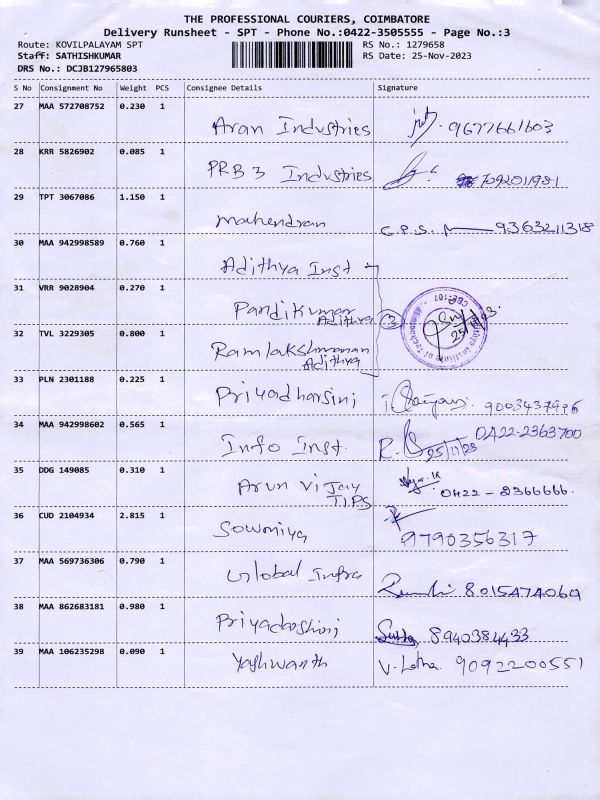 THE PROFESSIONAL COURIERS, COIMBATORE
Delivery Runsheet - SPT - Phone No.:0422-3505555 - Page No.:3
Route: KOVILPALAYAM SPT
RS No.: 1279658
Staff: SATHISHKUMAR
RS Date: 25-Nov-2023
DRS No.: DCJB127965803
S No Consignment No Weight PCS Consignee Details Signature
27 MAA 572708752 0.230 1
Aran Industries 9677661603
28 KRR 5826902 0.085 1
PRB 3 Industries 7092011981
29 TPT 3067086 1.150 1
Mahendran C.P.S. 9363211318
30 MAA 942998589 0.760 1
Adithya Inst
31 VRR 9028904 0.270 1
Pandikumar
Adithya
3
CBE-107
25/11/23
32 TVL 3229305 0.800 1
Ramlakshmanan
Adithya
33 PLN 2301188 0.225 1
Priyadharsini 9003437496
34 MAA 942998602 0.565 1
Info Inst. 0422-2363700
25/11/23
35 DDG 149085 0.310 1
Arun Vijay
TIPS
0422 - 2366666.
36 CUD 2104934 2.815 1
Sowmiya 9790356317
37 MAA 569736306 0.790 1
Global Infra 8015474069
38 MAA 862683181 0.980 1
Priyadarshini 8940384433
39 MAA 106235298 0.090 1
Yashwanth V. Latha 9092200551